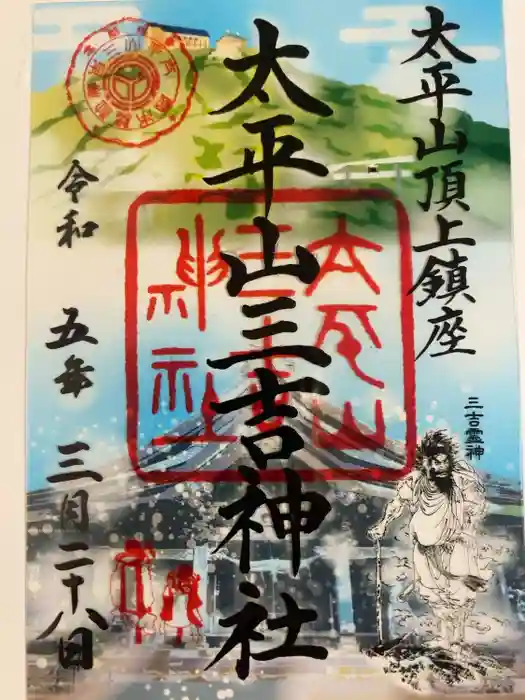 太平山頂上鎮座
太平山三吉神社
三吉霊神
太平山
三吉
神社
令和 五年 三月二十八日